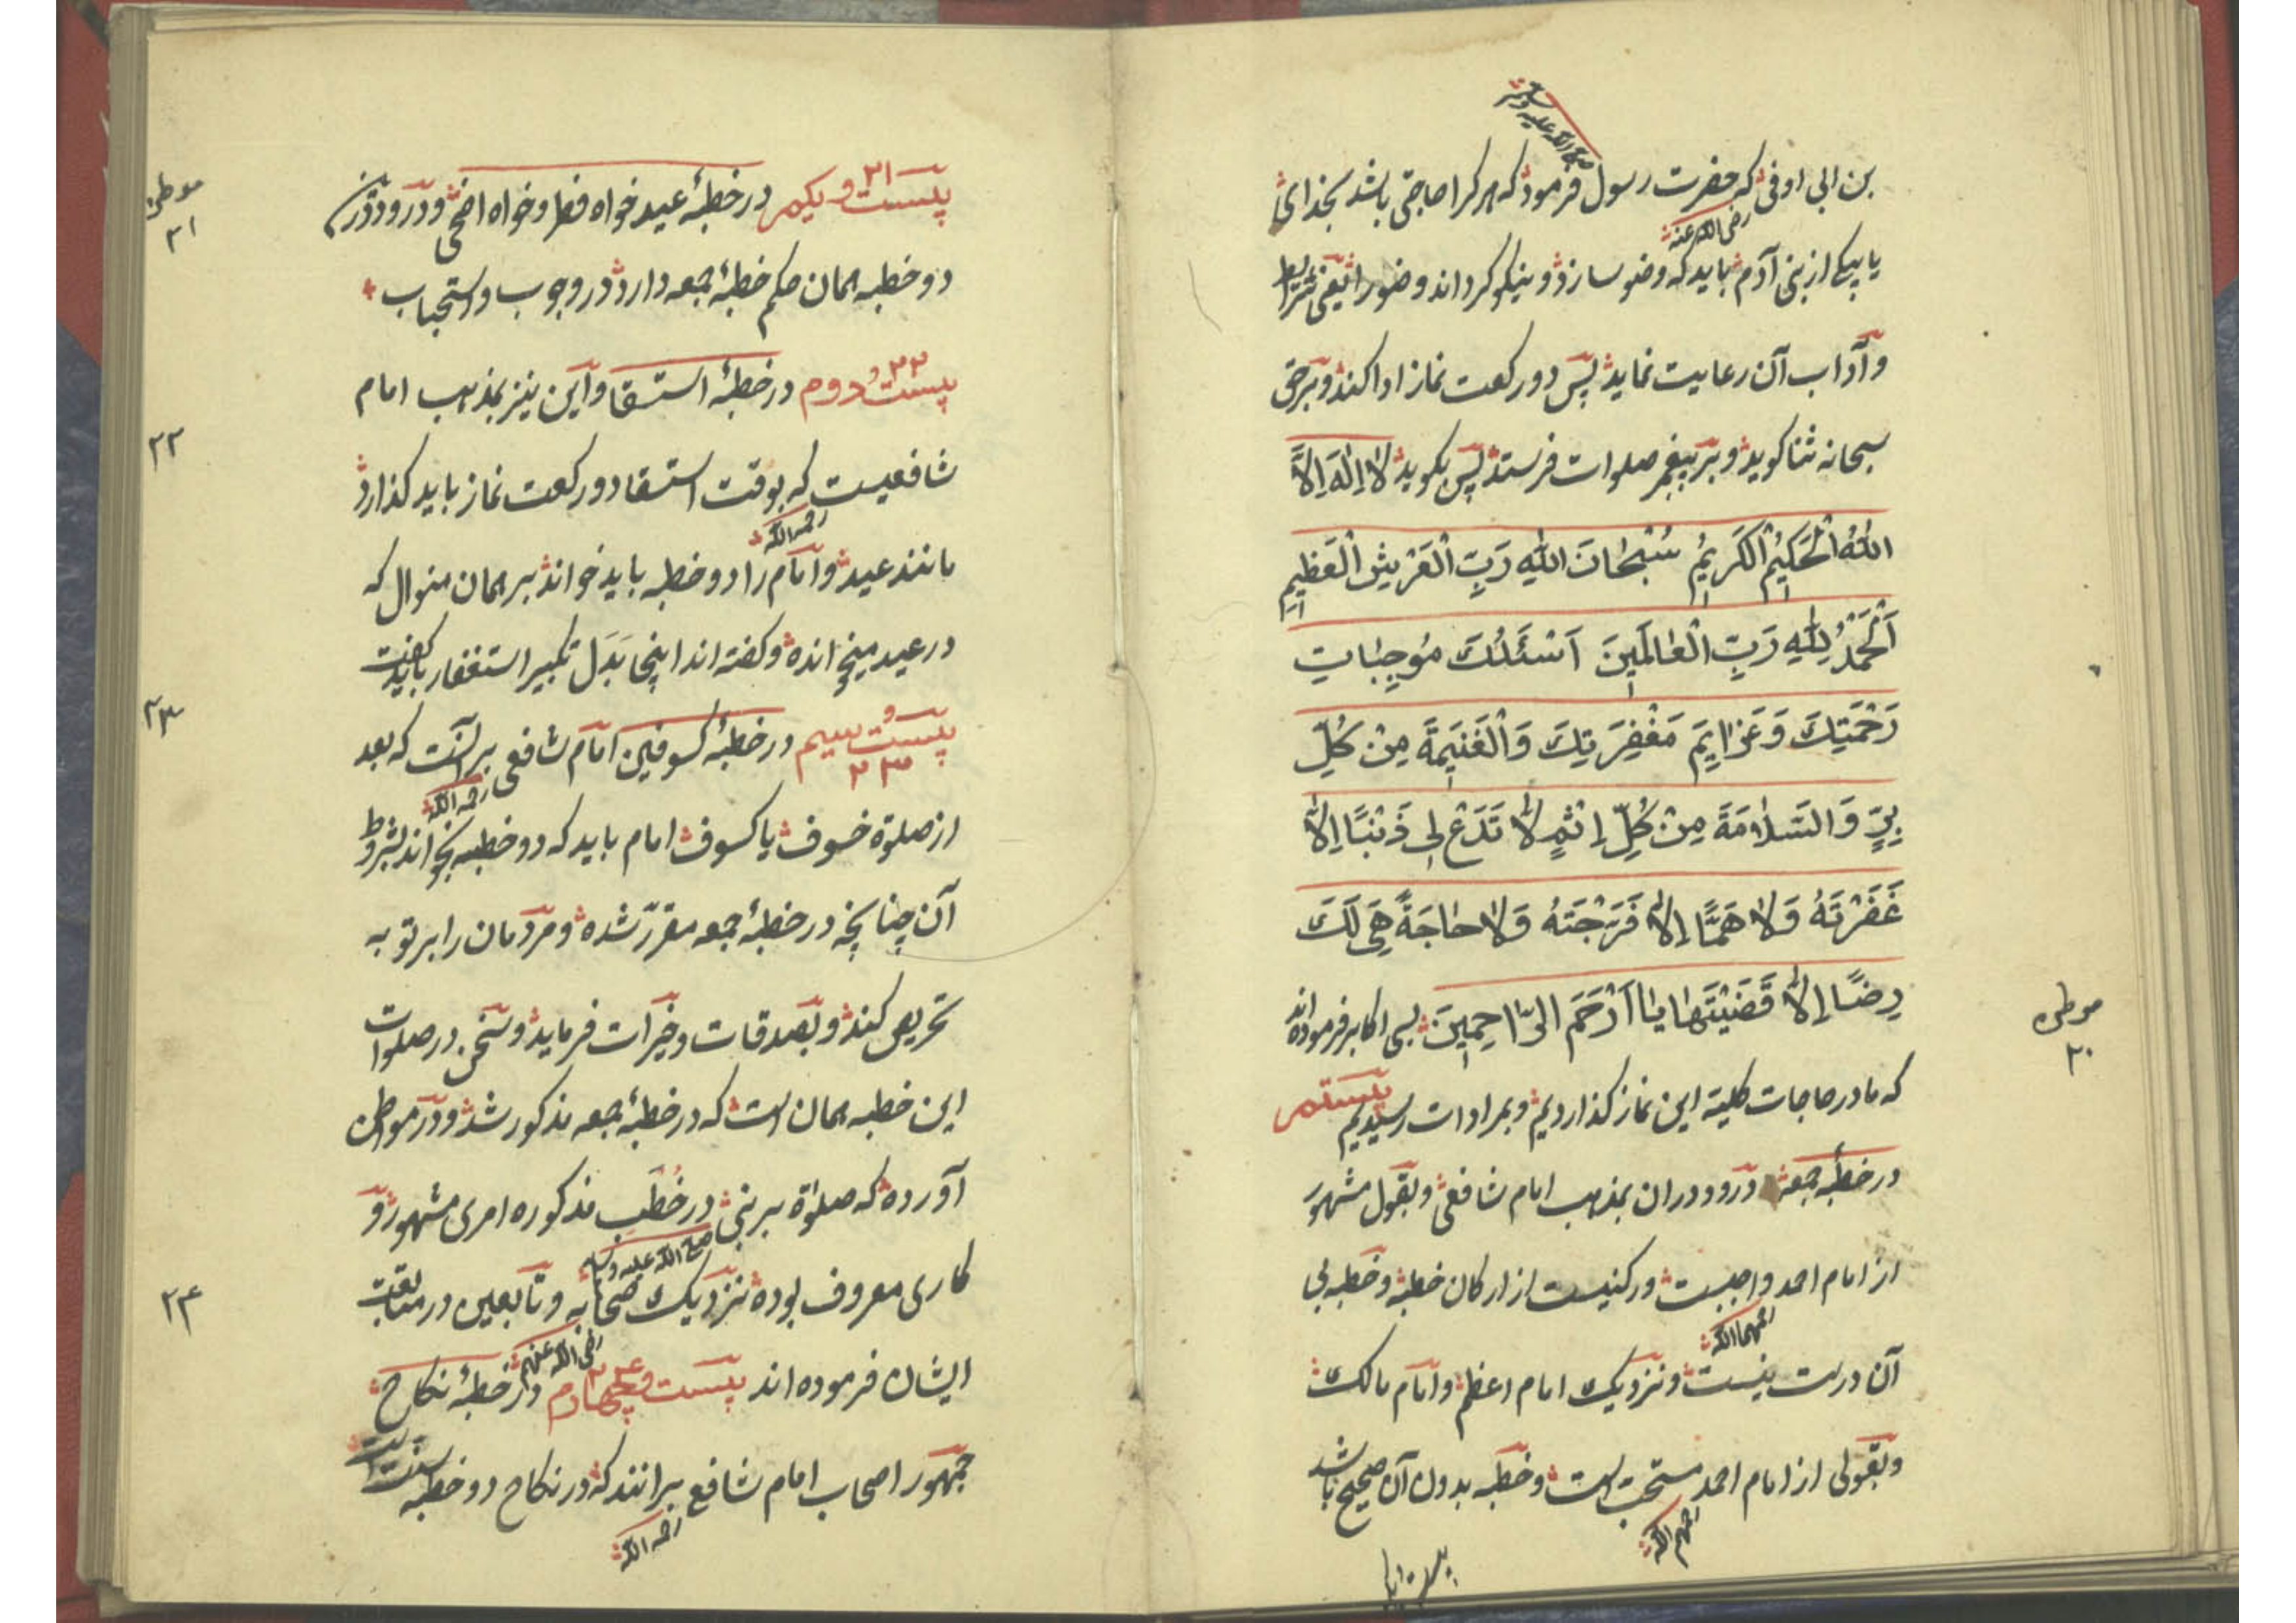 صلی الله علیه وسلم
بن ابی اوفی که حضرت رسول فرمود که هر کرا حاجتی باشد بخدای
رضی الله عنه
یا بیکی از بنی آدم باید که وضو سازد و نیکو کرداند وضو را یعنی شرایط
و آداب آن رعایت نماید پس دو رکعت نماز ادا کند و بر حق
سبحانه ثنا کوید و بر پیغمبر صلوات فرستد پس بکوید لا اِلٰهَ اِلاَّ
اللهُ الْحَکیمُ الْکَریمُ سُبْحَانَ اللهِ رَبِّ الْعَرْشِ الْعَظیمِ
اَلْحَمْدُ لِلهِ رَبِّ الْعَالَمینَ اَسْئَلُكَ مُوجِبَاتِ
رَحْمَتِكَ وَعَزایِمَ مَغْفِرَتِكَ وَالْغَنیمَةَ مِنْ کُلِّ
بِرٍّ وَالسَّلامَةَ مِنْ کُلِّ اِثْمٍ لا تَدَعْ لی ذَنْبًا اِلاَّ
غَفَرْتَهُ وَلا هَمًّا اِلاَّ فَرَّجْتَهُ وَلا حَاجَةً هِیَ لَكَ
رِضًا اِلاَّ قَضَیْتَهَا یَا اَرْحَمَ الرَّاحِمینَ بسی اکابر فرموده اند
موطن ۲۰
که ما در حاجات کلیه این نماز کذاردیم و بمرادات رسیدیم بیستم
در خطبهٔ جمعه و درود دران بمذهب امام شافعی و بقول مشهور
از امام احمد واجبست و رکنیست از ارکان خطبه و خطبه بی
رحمهما الله
آن درست نیست و نزدیك امام اعظم و امام مالك
و بقولی از امام احمد مستحب است و خطبه بدون آن صحیح باشد
رحمهم الله
بیست
موطن ۲۱
بیست و یکم ۲۱ در خطبهٔ عید خواه فطر و خواه اضحی و درود درین
دو خطبه همان حکم خطبهٔ جمعه دارد در وجوب و استحباب
۲۲
بیست و دوم ۲۲ در خطبهٔ استسقا و این نیز بمذهب امام
شافعیست که بوقت استسقا دو رکعت نماز باید کذارد
رحمه الله
مانند عید و امام را دو خطبه باید خواند بر همان منوال که
در عید میخوانده و کفته اند اینجا بَدَل تکبیر استغفار باید کفت
۲۳
بیست و سیم ۲۳ در خطبهٔ کسوفین امام شافعی برآنست که بعد
رحمه الله
از صلوة خسوف یا کسوف امام باید که دو خطبه بخواند بشروط
آن چنانچه در خطبهٔ جمعه مقرّر شده و مردمان را بر توبه
تحریص کند و بصدقات و خیرات فرماید و سخن در صلوات
این خطبه همان است که در خطبهٔ جمعه مذکور شد و در مواطن
آورده که صلوٰة بر نبی در خُطَب مذکوره امری مشهور و
صلی الله علیه وسلم
کاری معروف بوده نزدیك صحابه و تابعین در متابعت
رضی الله عنهم
۲۴
ایشان فرموده اند بیست و چهارم ۲۴ در خطبهٔ نکاح
جمهور اصحاب امام شافع برانند که در نکاح دو خطبه سنت است
رحمه الله